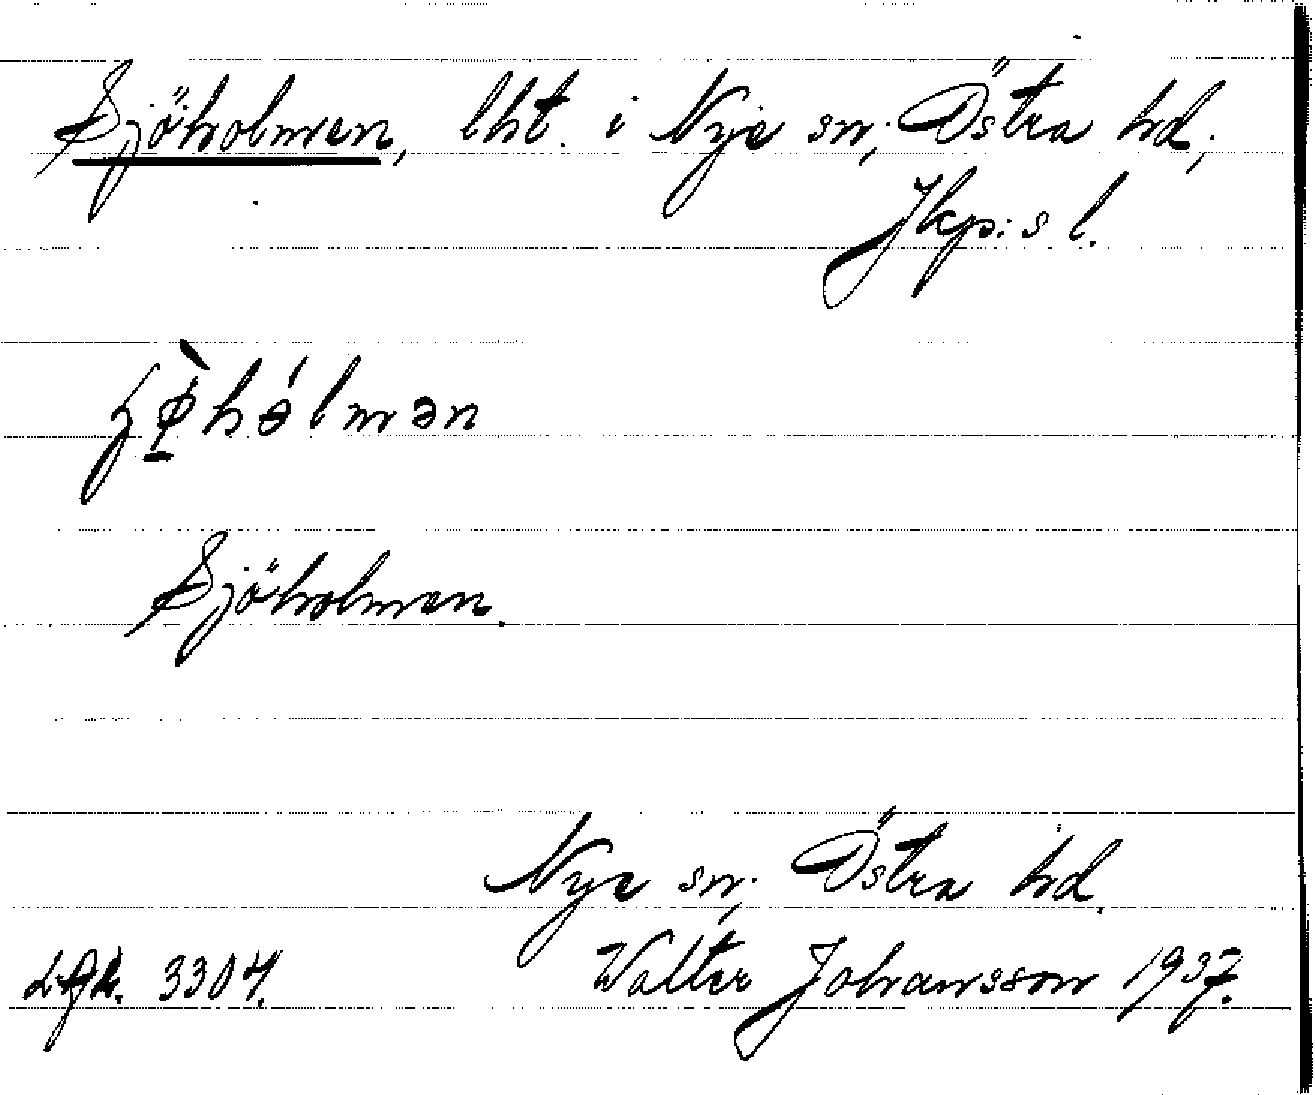 Sjöholmen, lht. i Nye sn, Östra hd,
Jkp:s l.
Sjöholmen.
Nye sn, Östra hd.
3304. Walter Johansson 1937.